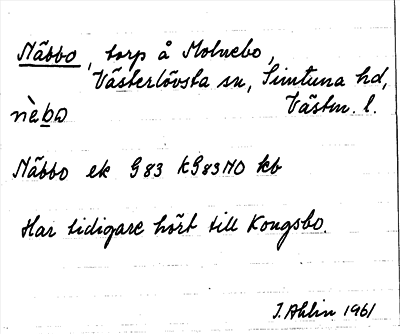 Näbbo, torp å Molnebo,
Västerlövsta sn, Simtuna hd,
nèbo Västm. l.
Näbbo ek G83 KG83NO kb
Har tidigare hört till Kongsbo.
I. Ahlin 1961